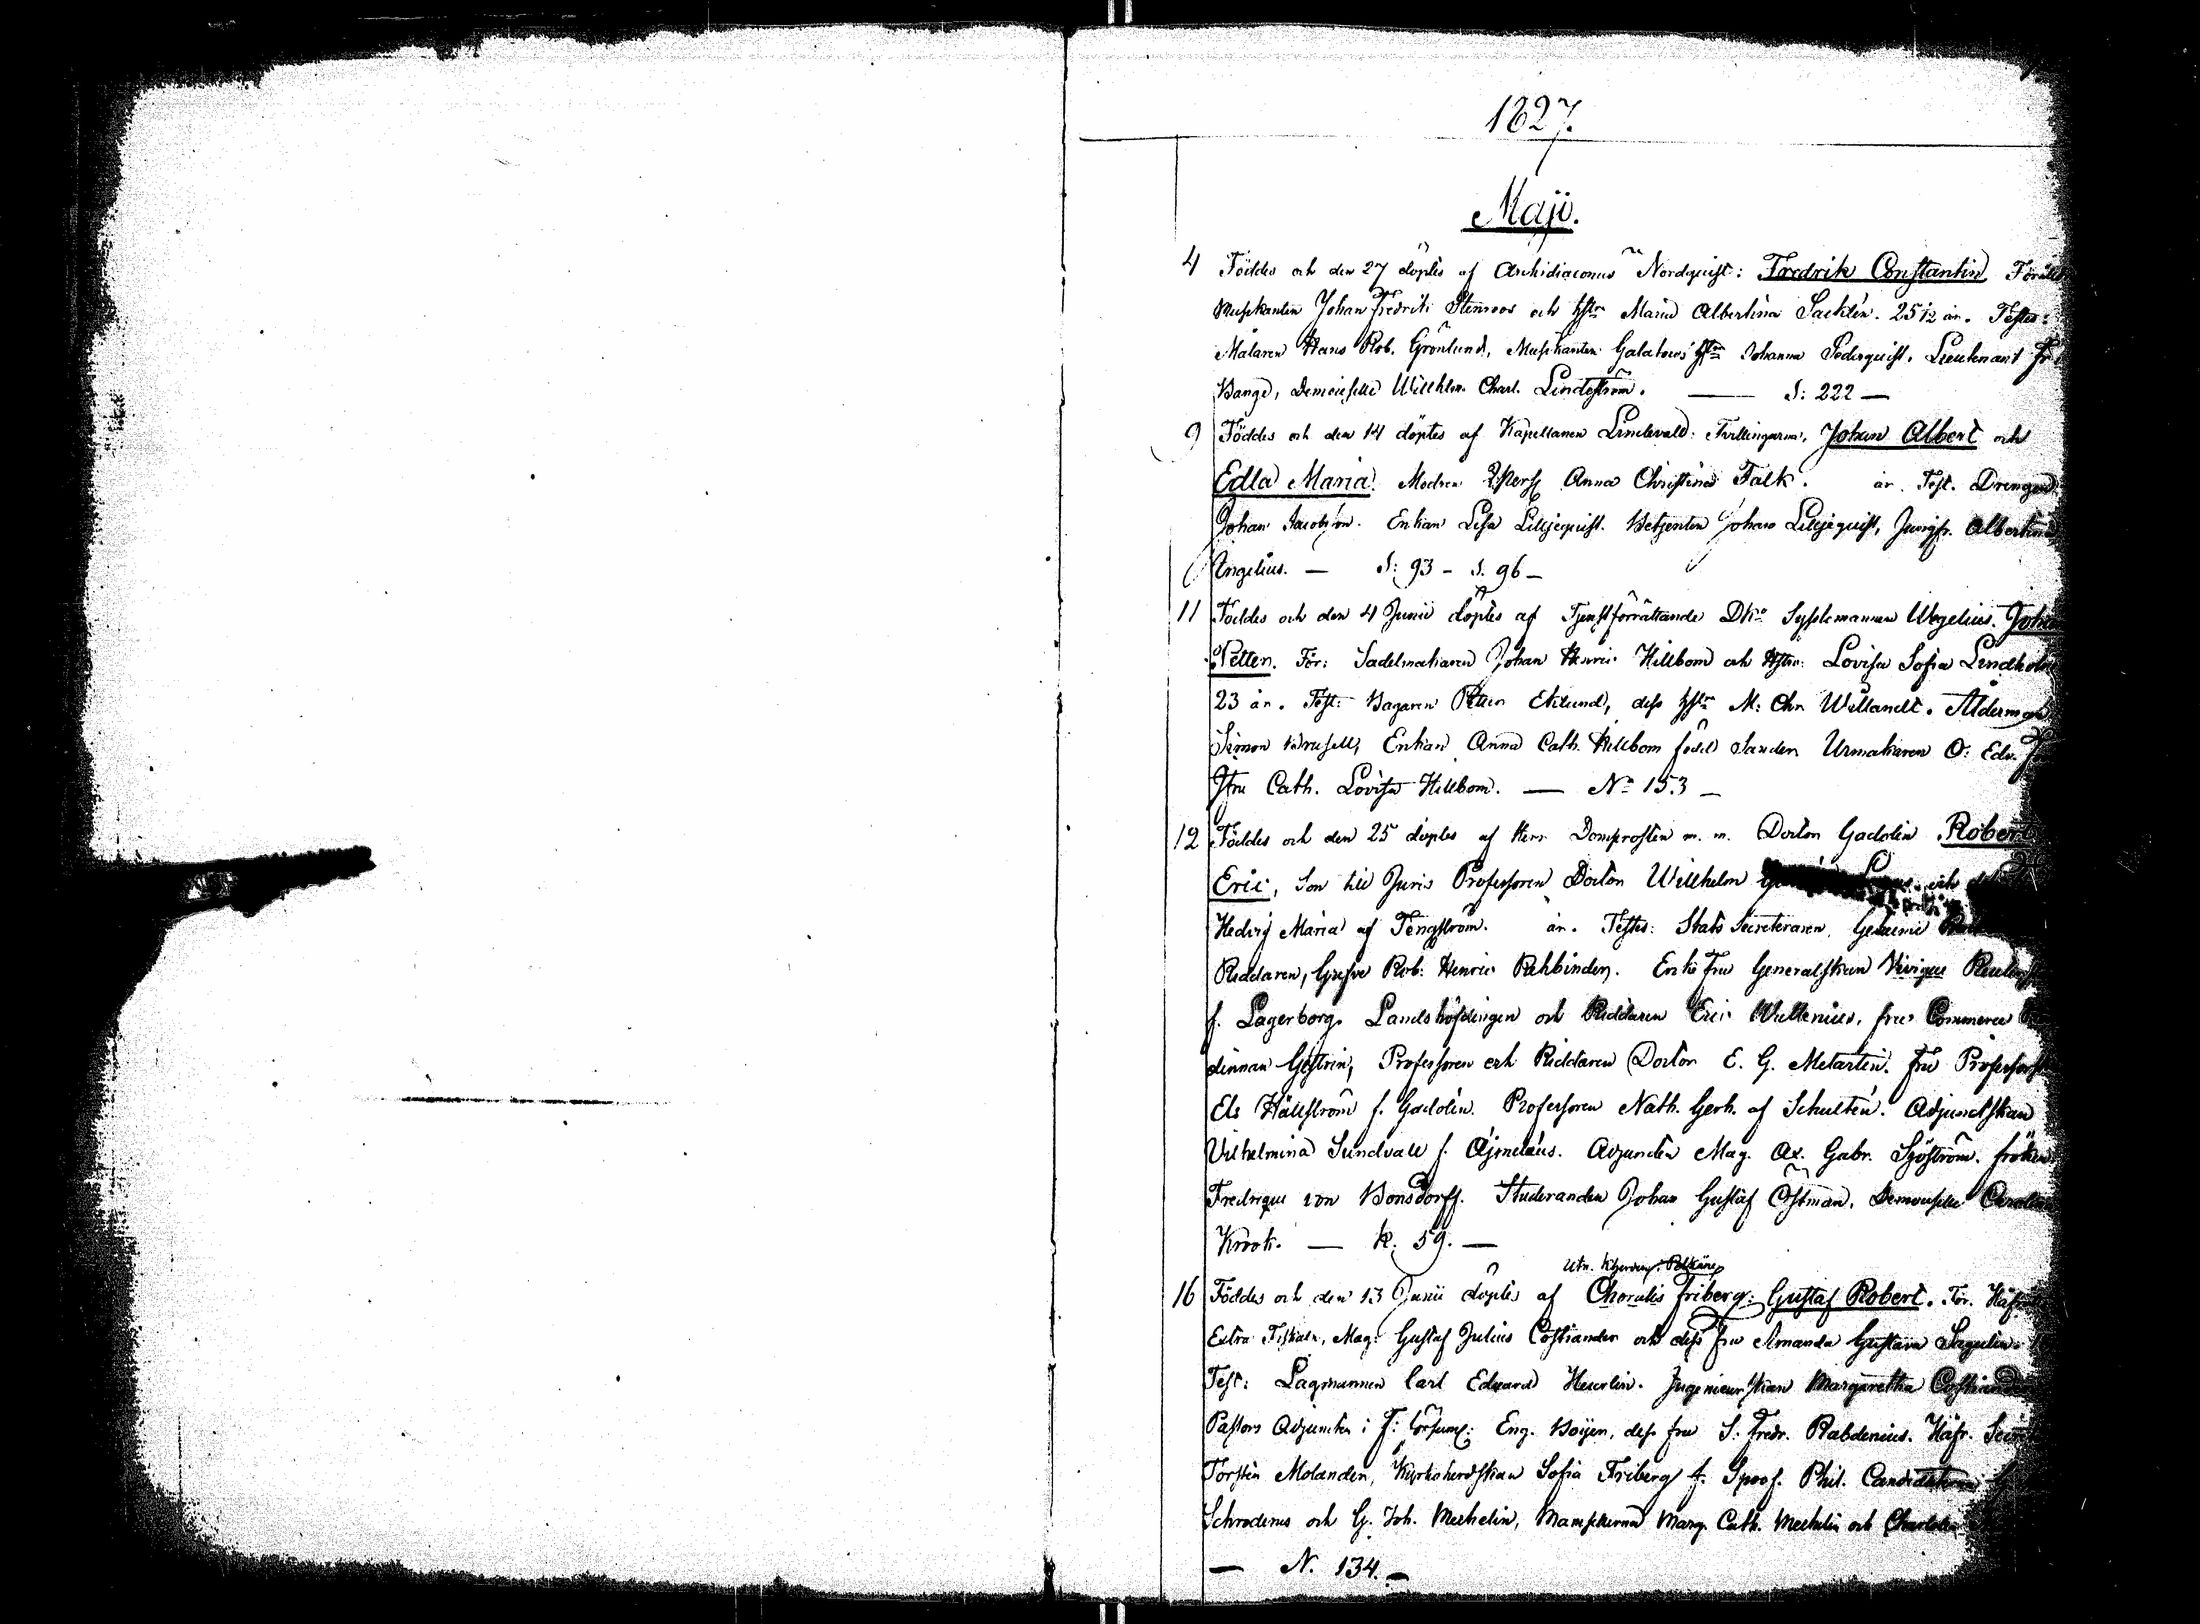 1827.
Maji.
4 Föddes och den 27 döptes af Archidiaconus Nordquist: Fredrik Constantin Föräld
Musikanten Johan Fredrik Stenroos och hstr Maria Albertina Sacklén. 25 1/2 år. Testes:
Målaren Hans Rob. Grönlund, Musikanten hstr Johanna Söderquist. Lieutenant
Bange, Demoiselle Willhlm. Charl. Lindeström. — S: 222 —
9 Föddes och den 14 döptes af Kapellanen Lindevald: Tvillingarne, Johan Albert och
Edla Maria. Modren Anna Christina Falk. år. Test. Drengen
Johan Jacobson. Enkan Lisa Liljequist. Betjenten Johan Liljequist, Jungfr. Albertina
Engelius. — S: 93 - S. 96 -
11 Föddes och den 4 Junii döptes af Tjenstförrättande Dkn Sysslomannen Wegelius. Joh
Petter. För: Sadelmakaren Johan Henric Hillbom och Hstru: Lovisa Sofia Lindholm
23 år. Test: Bagaren Petter Eklund, dess hstr M: Chr. Willandt. Ålderman
Simon Enkan Anna Cath. Hillbom född Sanden Urmakaren O: Edv.
Jfru Cath. Lovisa Hillbom. — No 153 —
12 Föddes och den 25 döptes af Herr Domprosten m. m. Doctor Gadolin Robert
Eric, Son till Juris Professoren Doctor Willhelm och
Hedvig Maria af Tengström. år. Testes: Stats Secreteraren, Geheime
Riddaren, Grefve Rob: Henric Rehbinder. Enke fru Generalskan Vivique
f. Lagerborg. Landshöfdingen och Riddaren Eric Wallenius, fru Commerce
dinnan Gestrin, Professoren och Riddaren Doctor E. G. Melartin. fru Professorsk
Els Hällström f. Gadolin. Professoren Nath. Gerh. af Schultén. Adjunctskan
Vilhelmina Sundvall f. Ajmelæus. Adjuncten Mag. Ax. Gabr. Sjöström. fröken
Fredrique von Bonsdorff. Studeranden Johan Gustaf Östman. Demoiselle Carolina
Krook. — K: 59. —
16 Föddes och den 13 Junii döptes af Choralis Friberg: Gustaf Robert. För. Håf
Extra Fiskaln, Mag. Gustaf Julius Costiander och dess fru Amanda Gustava Sagulin
Test: Lagmannen Carl Edvard Heurlin. Ingenieurskan Margaretha Costiander
Pastors Adjuncten i F: Eng. Boijer, dess fru S. Fredr. Rabdenius. Håfr.
Torsten Molander, Kyrkoherdskan Sofia Friberg f. Sprof. Phil. Candidaterne
Schroderus och G. Joh. Mechelin, Mamsellerna Marg. Cath. Mechelin och Charlotta
— N. 134. —